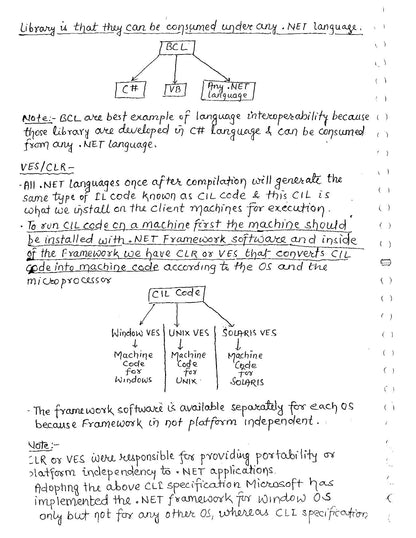 Library is that they can be consumed under any .NET language.
BCL
C#
VB
Any .NET
language
Note:- BCL are best example of language interoperability because
those library are developed in C# language & can be consumed
from any .NET language.
VES/CLR:-
· All .NET languages once after compilation will generate the
same type of IL code known as CIL code & this CIL is
what we install on the client machines for execution.
· To run CIL code on a machine first the machine should
be installed with .NET Framework software and inside
of the Framework we have CLR or VES that converts CIL
code into machine code according to the OS and the
microprocessor
CIL Code
Window VES
UNIX VES
SOLARIS VES
Machine
Code
for
Windows
Machine
Code
for
UNIX
Machine
Code
for
SOLARIS
· The framework software is available separately for each OS
because Framework in not platform independent.
Note:-
CLR or VES were responsible for providing portability or
platform independency to .NET applications.
Adopting the above CLI specification Microsoft has
implemented the .NET framework for Window OS
only but not for any other OS, whereas CLI specification